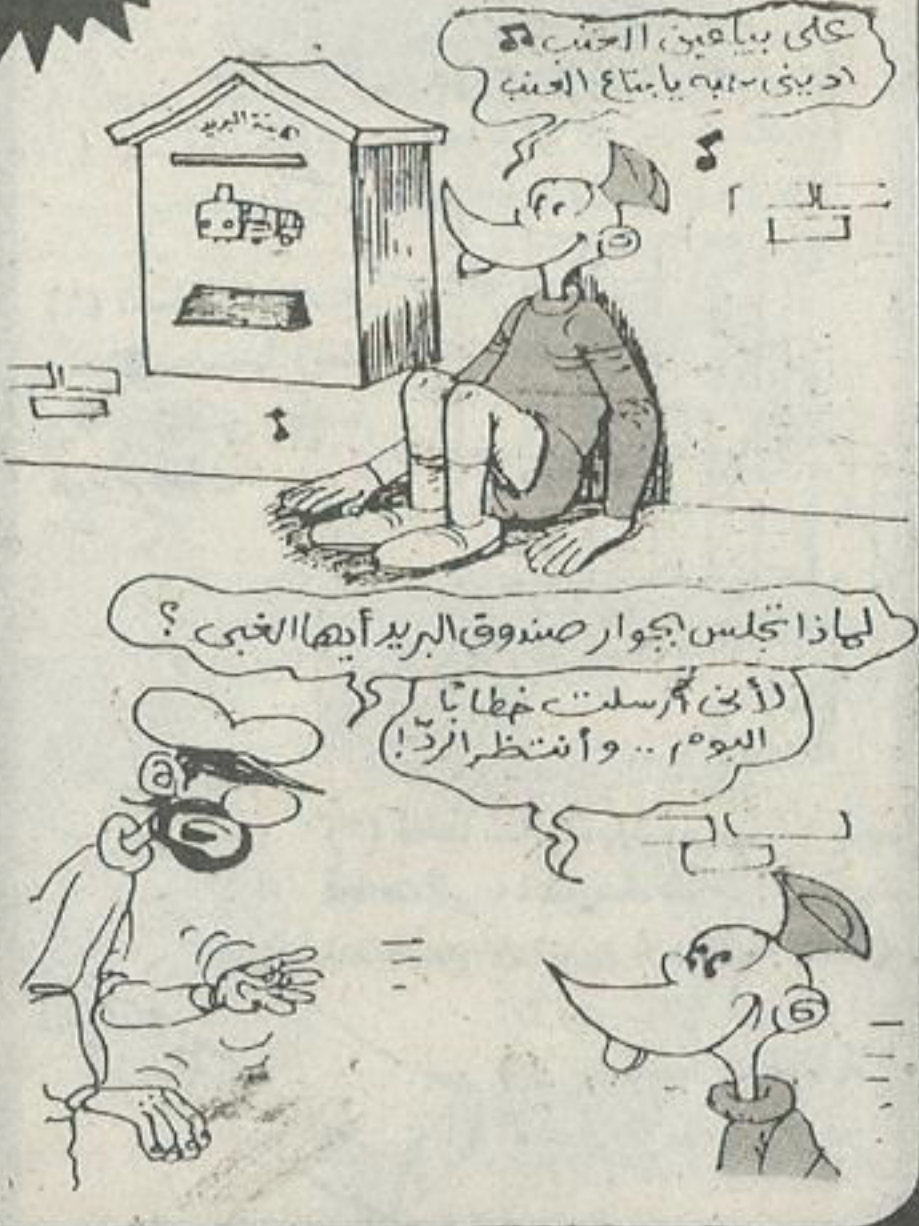 على بياعين العنب
اديني حبه يا بتاع العنب
هيئة البريد
لماذا تجلس بجوار صندوق البريد أيها الغبى ؟
لأنى أرسلت خطابًا
اليوم .. وأنتظر الردّ!